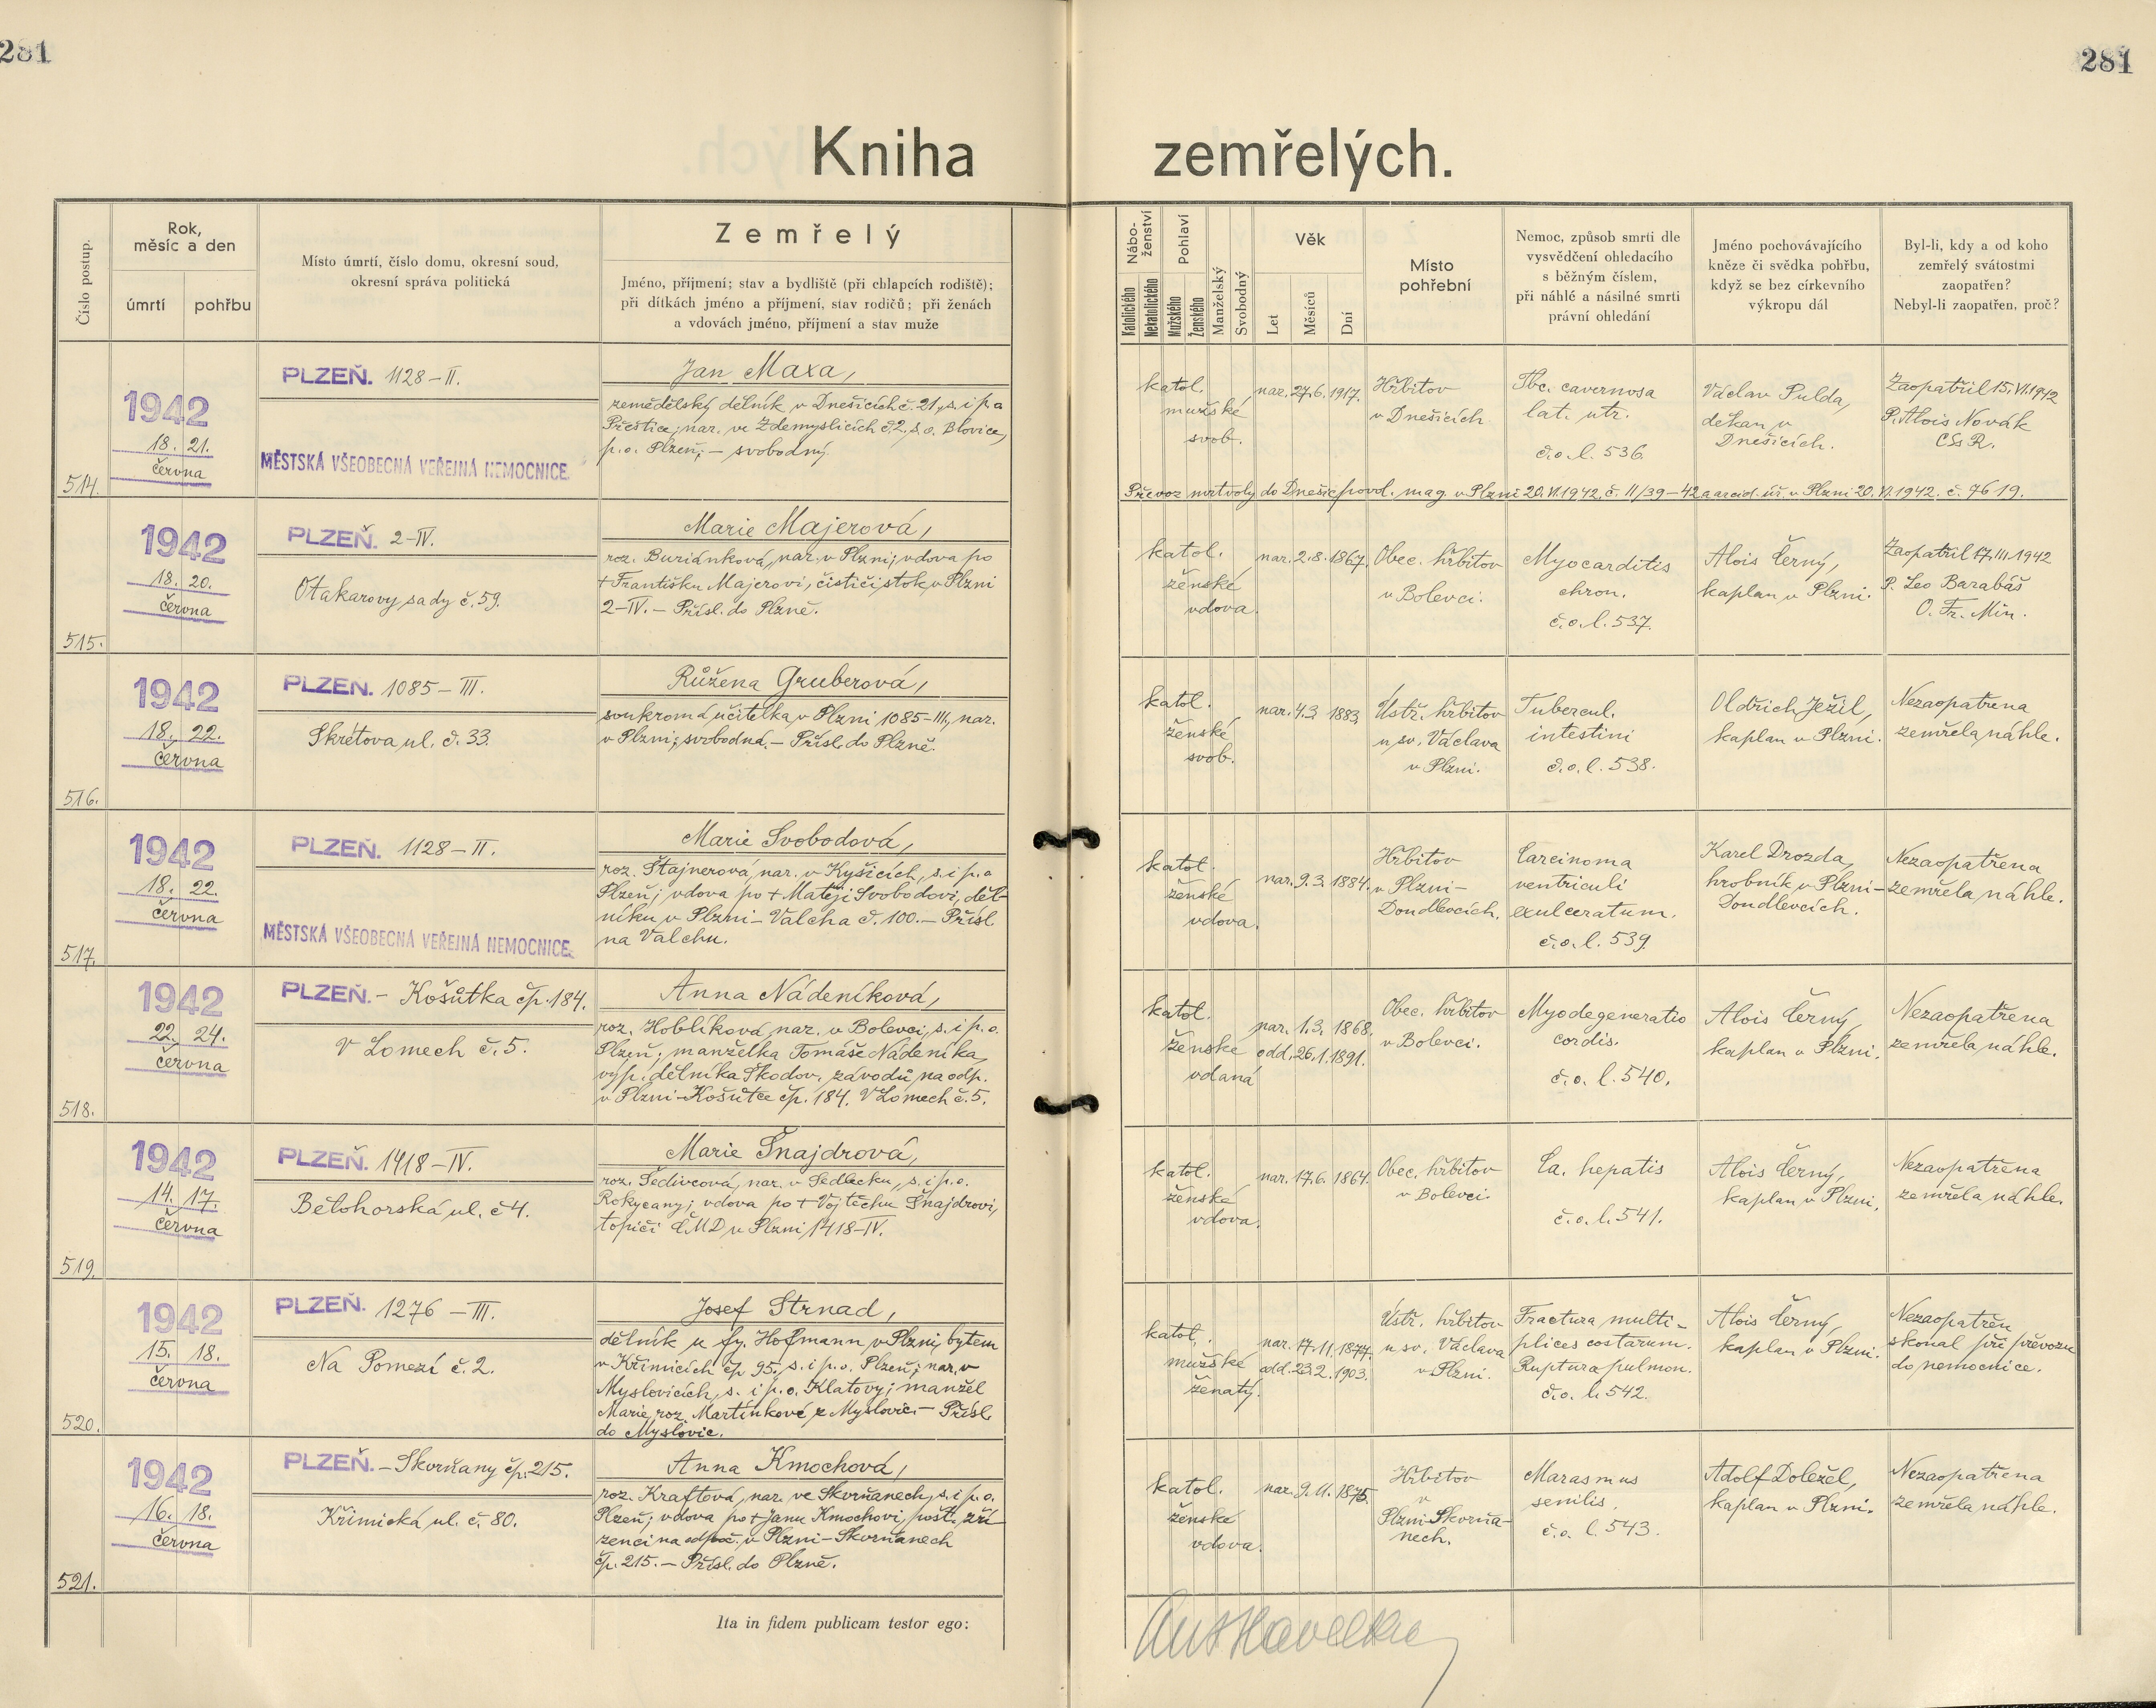 281
281
Kniha zemřelých.
Číslo postup.
Rok,
měsíc a den
úmrtí
pohřbu
Místo úmrtí, číslo domu, okresní soud,
okresní správa politická
Zemřelý
Jméno, příjmení; stav a bydliště (při chlapcích rodiště);
při dítkách jméno a příjmení, stav rodičů; při ženách
a vdovách jméno, příjmení a stav muže
Nábo-
ženství
Katolického
Nekatolického
Pohlaví
Mužského
Ženského
Manželský
Svobodný
Věk
Let
Měsíců
Dní
Místo
pohřební
Nemoc, způsob smrti dle
vysvědčení ohledacího
s běžným číslem,
při náhlé a násilné smrti
právní ohledání
Jméno pochovávajícího
kněze či svědka pohřbu,
když se bez církevního
výkropu dál
Byl-li, kdy a od koho
zemřelý svátostmi
zaopatřen?
Nebyl-li zaopatřen, proč?
514.
1942
18. 21.
června
PLZEŇ. 1128–II.
MĚSTSKÁ VŠEOBECNÁ VEŘEJNÁ NEMOCNICE.
Jan Maxa,
zemědělský dělník v Dnešicích č. 21, s. i p. o
Přeštice; nar. ve Zdemyslicích č. 2, s. o. Blovice,
p. o. Plzeň; – svobodný.
katol.
mužské
svob.
nar. 27. 6. 1917.
Hřbitov
v Dnešicích
Tbc. cavernosa
lat. utr.
č. o. l. 536.
Václav Pulda,
děkan v
Dnešicích.
Zaopatřil 15. VI. 1942
P. Alois Novák
CSsR.
Převoz mrtvoly do Dnešic povol. mag. v Plzni 20. VI. 1942, č. II/39–42 a arcid. úř. v Plzni 20. VI. 1942. č. 7619.
515.
1942
18. 20.
června
PLZEŇ. 2–IV.
Otakarovy sady č. 59.
Marie Majerová,
roz. Buriánková, nar. v Plzni; vdova po
+ Františku Majerovi, čističi stok, v Plzni
2–IV. – Přísl. do Plzně.
katol.
ženské
vdova.
nar. 2. 8. 1867.
Obec. hřbitov
v Bolevci.
Myocarditis
chron.
č. o. l. 537.
Alois Černý,
kaplan v Plzni.
Zaopatřil 17. III. 1942
P. Leo Barabáš
O. Fr. Min.
516.
1942
18. 22.
června
PLZEŇ. 1085–III.
Skrétova ul. č. 33.
Růžena Gruberová,
soukromá učitelka v Plzni 1085–III., nar.
v Plzni; svobodná. – Přísl. do Plzně.
katol.
ženské
svob.
nar. 4. 3. 1883
Ústř. hřbitov
u sv. Václava
v Plzni.
Tubercul.
intestini
č. o. l. 538.
Oldřich Ježil,
kaplan v Plzni.
Nezaopatřena
zemřela náhle.
517.
1942
18. 22.
června
PLZEŇ. 1128–II.
MĚSTSKÁ VŠEOBECNÁ VEŘEJNÁ NEMOCNICE.
Marie Svobodová,
roz. Štajnerová, nar. v Kyšicích, s. i p. o
Plzeň; vdova po + Matěji Svobodovi, děl-
níku v Plzni–Valcha č. 100. – Přísl.
na Valchu.
katol.
ženské
vdova.
nar. 9. 3. 1884.
Hřbitov
v Plzni–
Doudlevcích.
Carcinoma
ventriculi
exulceratum.
č. o. l. 539.
Karel Drozda,
hrobník v Plzni–
Doudlevcích.
Nezaopatřena
zemřela náhle.
518.
1942
22. 24.
června
PLZEŇ. – Košutka čp. 184.
V Lomech č. 5.
Anna Nádeníková,
roz. Hoblíková, nar. v Bolevci, s. i p. o.
Plzeň; manželka Tomáše Nádeníka,
výp. dělníka Škodov. závodů na odp.
v Plzni–Košutce čp. 184. V Lomech č. 5.
katol.
ženské
vdaná
nar. 1. 3. 1868.
odd. 26. 1. 1891.
Obec. hřbitov
v Bolevci.
Myodegeneratio
cordis.
č. o. l. 540.
Alois Černý,
kaplan v Plzni.
Nezaopatřena
zemřela náhle.
519.
1942
14. 17.
června
PLZEŇ. 1418–IV.
Bělohorská ul. č 4.
Marie Šnajdrová,
roz. Šedivcová, nar. v Sedlecku, s. i p. o.
Rokycany; vdova po + Vojtěchu Šnajdrovi,
topiči ČMD v Plzni 1418–IV.
katol.
ženské
vdova.
nar. 17. 6. 1864.
Obec. hřbitov
v Bolevci.
Ca. hepatis
č. o. l. 541.
Alois Černý,
kaplan v Plzni.
Nezaopatřena
zemřela náhle.
520.
1942
15. 18.
června
PLZEŇ. 1276–III.
Na Pomezí č. 2.
Josef Strnad,
dělník u fy. Hofmann v Plzni, bytem
v Křimicích čp. 95, s. i p. o. Plzeň; nar. v
Myslovicích, s. i p. o. Klatovy; manžel
Marie, roz. Martínkové z Myslovic. – Přísl.
do Myslovic.
katol.
mužské
ženatý.
nar. 17. 11. 1877.
odd. 23. 2. 1903.
Ústř. hřbitov
u sv. Václava
v Plzni.
Fractura multi-
plices costarum.
Ruptura pulmon.
č. o. l. 542.
Alois Černý,
kaplan v Plzni.
Nezaopatřen
skonal při převozu
do nemocnice.
521.
1942
16. 18.
června
PLZEŇ. – Skvrňany čp. 215.
Křimická ul. č. 80.
Anna Kmochová,
roz. Kraftová, nar. ve Skvrňanech, s. i p. o.
Plzeň; vdova po + Janu Kmochovi, pošt. zří-
zenci na odpoč. v Plzni–Skvrňanech
čp. 215. – Přísl. do Plzně.
katol.
ženské
vdova.
nar. 9. 11. 1875.
Hřbitov
v
Plzni–Skvrňa-
nech.
Marasmus
senilis.
č. o. l. 543.
Adolf Doležel,
kaplan v Plzni.
Nezaopatřena
zemřela náhle.
Ita in fidem publicam testor ego:
Ant Havelka